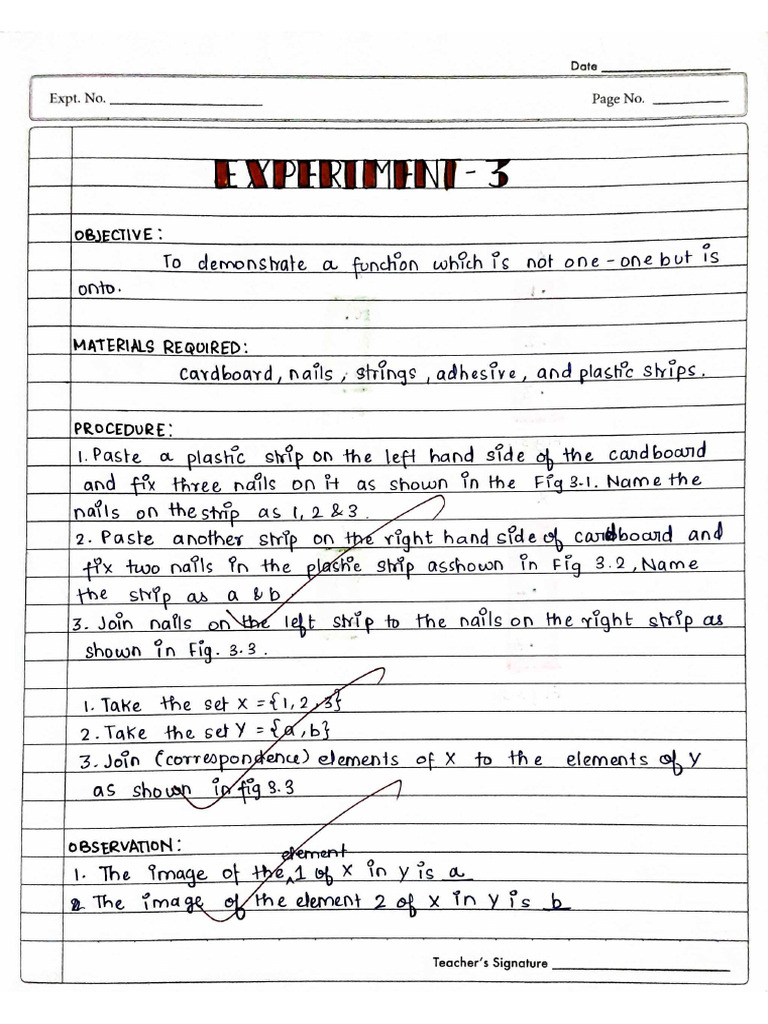 Date
Expt. No. Page No.
EXPERIMENT - 3
OBJECTIVE :
To demonstrate a function which is not one - one but is
onto.
MATERIALS REQUIRED:
cardboard, nails, strings, adhesive, and plastic strips.
PROCEDURE:
1. Paste a plastic strip on the left hand side of the cardboard
and fix three nails on it as shown in the Fig 3.1. Name the
nails on the strip as 1, 2 & 3.
2. Paste another strip on the right hand side of cardboard and
fix two nails in the plastic strip asshown in Fig 3.2, Name
the strip as a & b.
3. Join nails on the left strip to the nails on the right strip as
shown in Fig. 3.3.
1. Take the set X = {1, 2, 3}
2. Take the set Y = {a, b}
3. Join (correspondence) elements of X to the elements of Y
as shown in fig 3.3
OBSERVATION :
1. The image of the element 1 of X in Y is a
2. The image of the element 2 of X in Y is b
Teacher's Signature